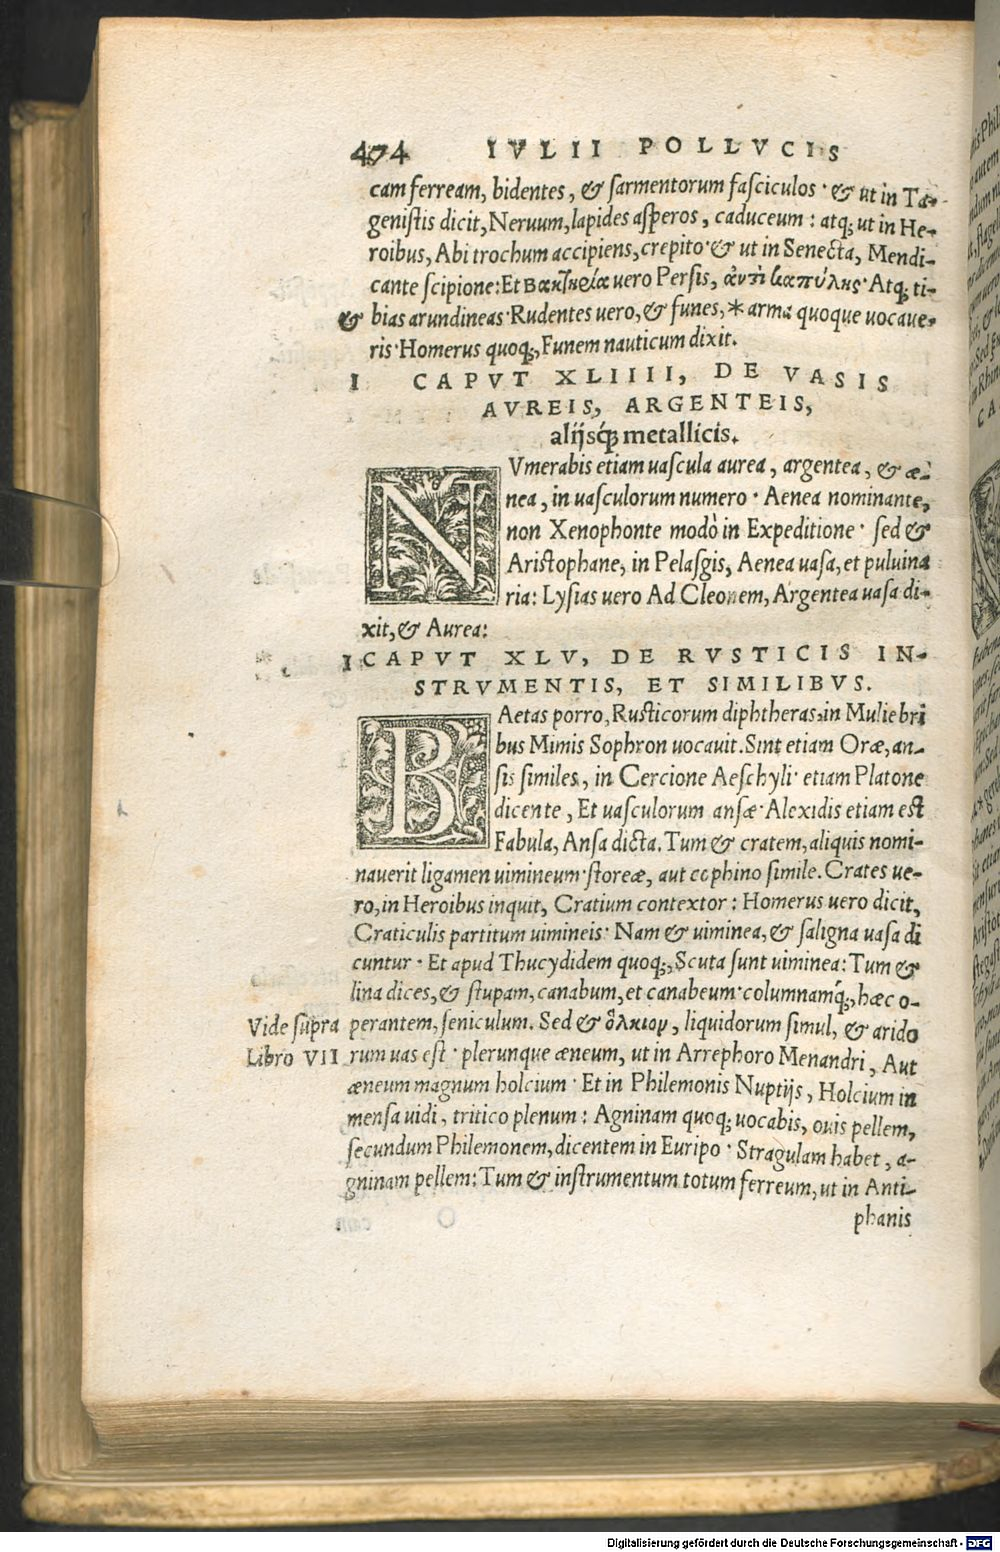 474 IVLII POLLVCIS
cam ferream, bidentes, & sarmentorum fasciculos · & ut in Ta-
genistis dicit, Neruum, lapides asperos, caduceum : atq; ut in He-
roibus, Abi trochum accipiens, crepito · & ut in Senecta, Mendi-
cante scipione: Et βακτηρία uero Persis, ἀντὶ διαπύλης · Atq; ti-
& bias arundineas · Rudentes uero, & funes, * arma quoque uocaue-
ris · Homerus quoq;, Funem nauticum dixit.
I CAPVT XLIIII, DE VASIS
AVREIS, ARGENTEIS,
alijsq; metallicis.
NVmerabis etiam uascula aurea, argentea, & æ-
nea, in uasculorum numero · Aenea nominante,
non Xenophonte modò in Expeditione · sed &
Aristophane, in Pelasgis, Aenea uasa, et puluina
ria: Lysias uero Ad Cleonem, Argentea uasa di-
xit, & Aurea:
I CAPVT XLV, DE RVSTICIS IN-
STRVMENTIS, ET SIMILIBVS.
BAetas porro, Rusticorum diphtheras, in Muliebri
bus Mimis Sophron uocauit. Sint etiam Oræ, an-
sis similes, in Cercione Aeschyli · etiam Platone
dicente, Et uasculorum ansæ · Alexidis etiam est
Fabula, Ansa dicta. Tum & cratem, aliquis nomi-
nauerit ligamen uimineum · storeæ, aut cophino simile. Crates ue-
ro, in Heroibus inquit, Cratium contextor : Homerus uero dicit,
Craticulis partitum uimineis · Nam & uiminea, & saligna uasa di
cuntur · Et apud Thucydidem quoq;, Scuta sunt uiminea: Tum &
lina dices, & stupam, canabum, et canabeum · columnamq́;, hæc o-
Vide supra perantem, seniculum. Sed & ὅλκιον, liquidorum simul, & arido
Libro VII rum uas est · plerunque æneum, ut in Arrephoro Menandri, Aut
æneum magnum holcium · Et in Philemonis Nuptijs, Holcium in
mensa uidi, tritico plenum : Agninam quoq; uocabis, ouis pellem,
secundum Philemonem, dicentem in Euripo · Stragulam habet, a-
gninam pellem: Tum & instrumentum totum ferreum, ut in Anti-
phanis
Digitalisierung gefördert durch die Deutsche Forschungsgemeinschaft - DFG